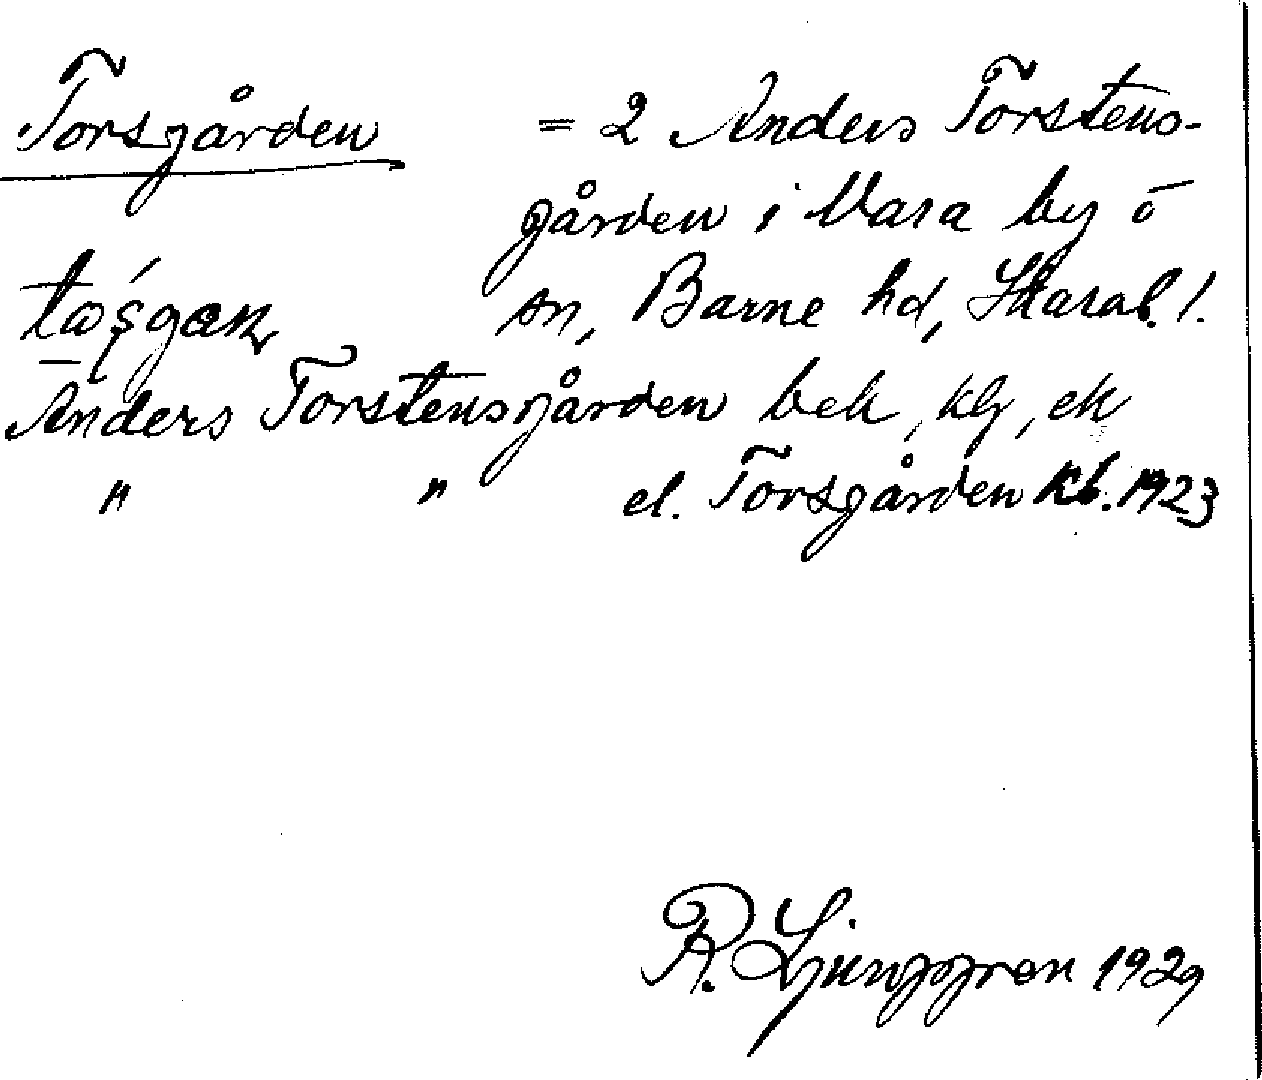 Torsgården = 2 Anders Torstens-
gården i Vara by o
sn, Barne hd, Skarab. l.
Anders Torstensgården bek, klg, ek
" " el. Torsgården kb. 1923
R. Ljunggren 1929